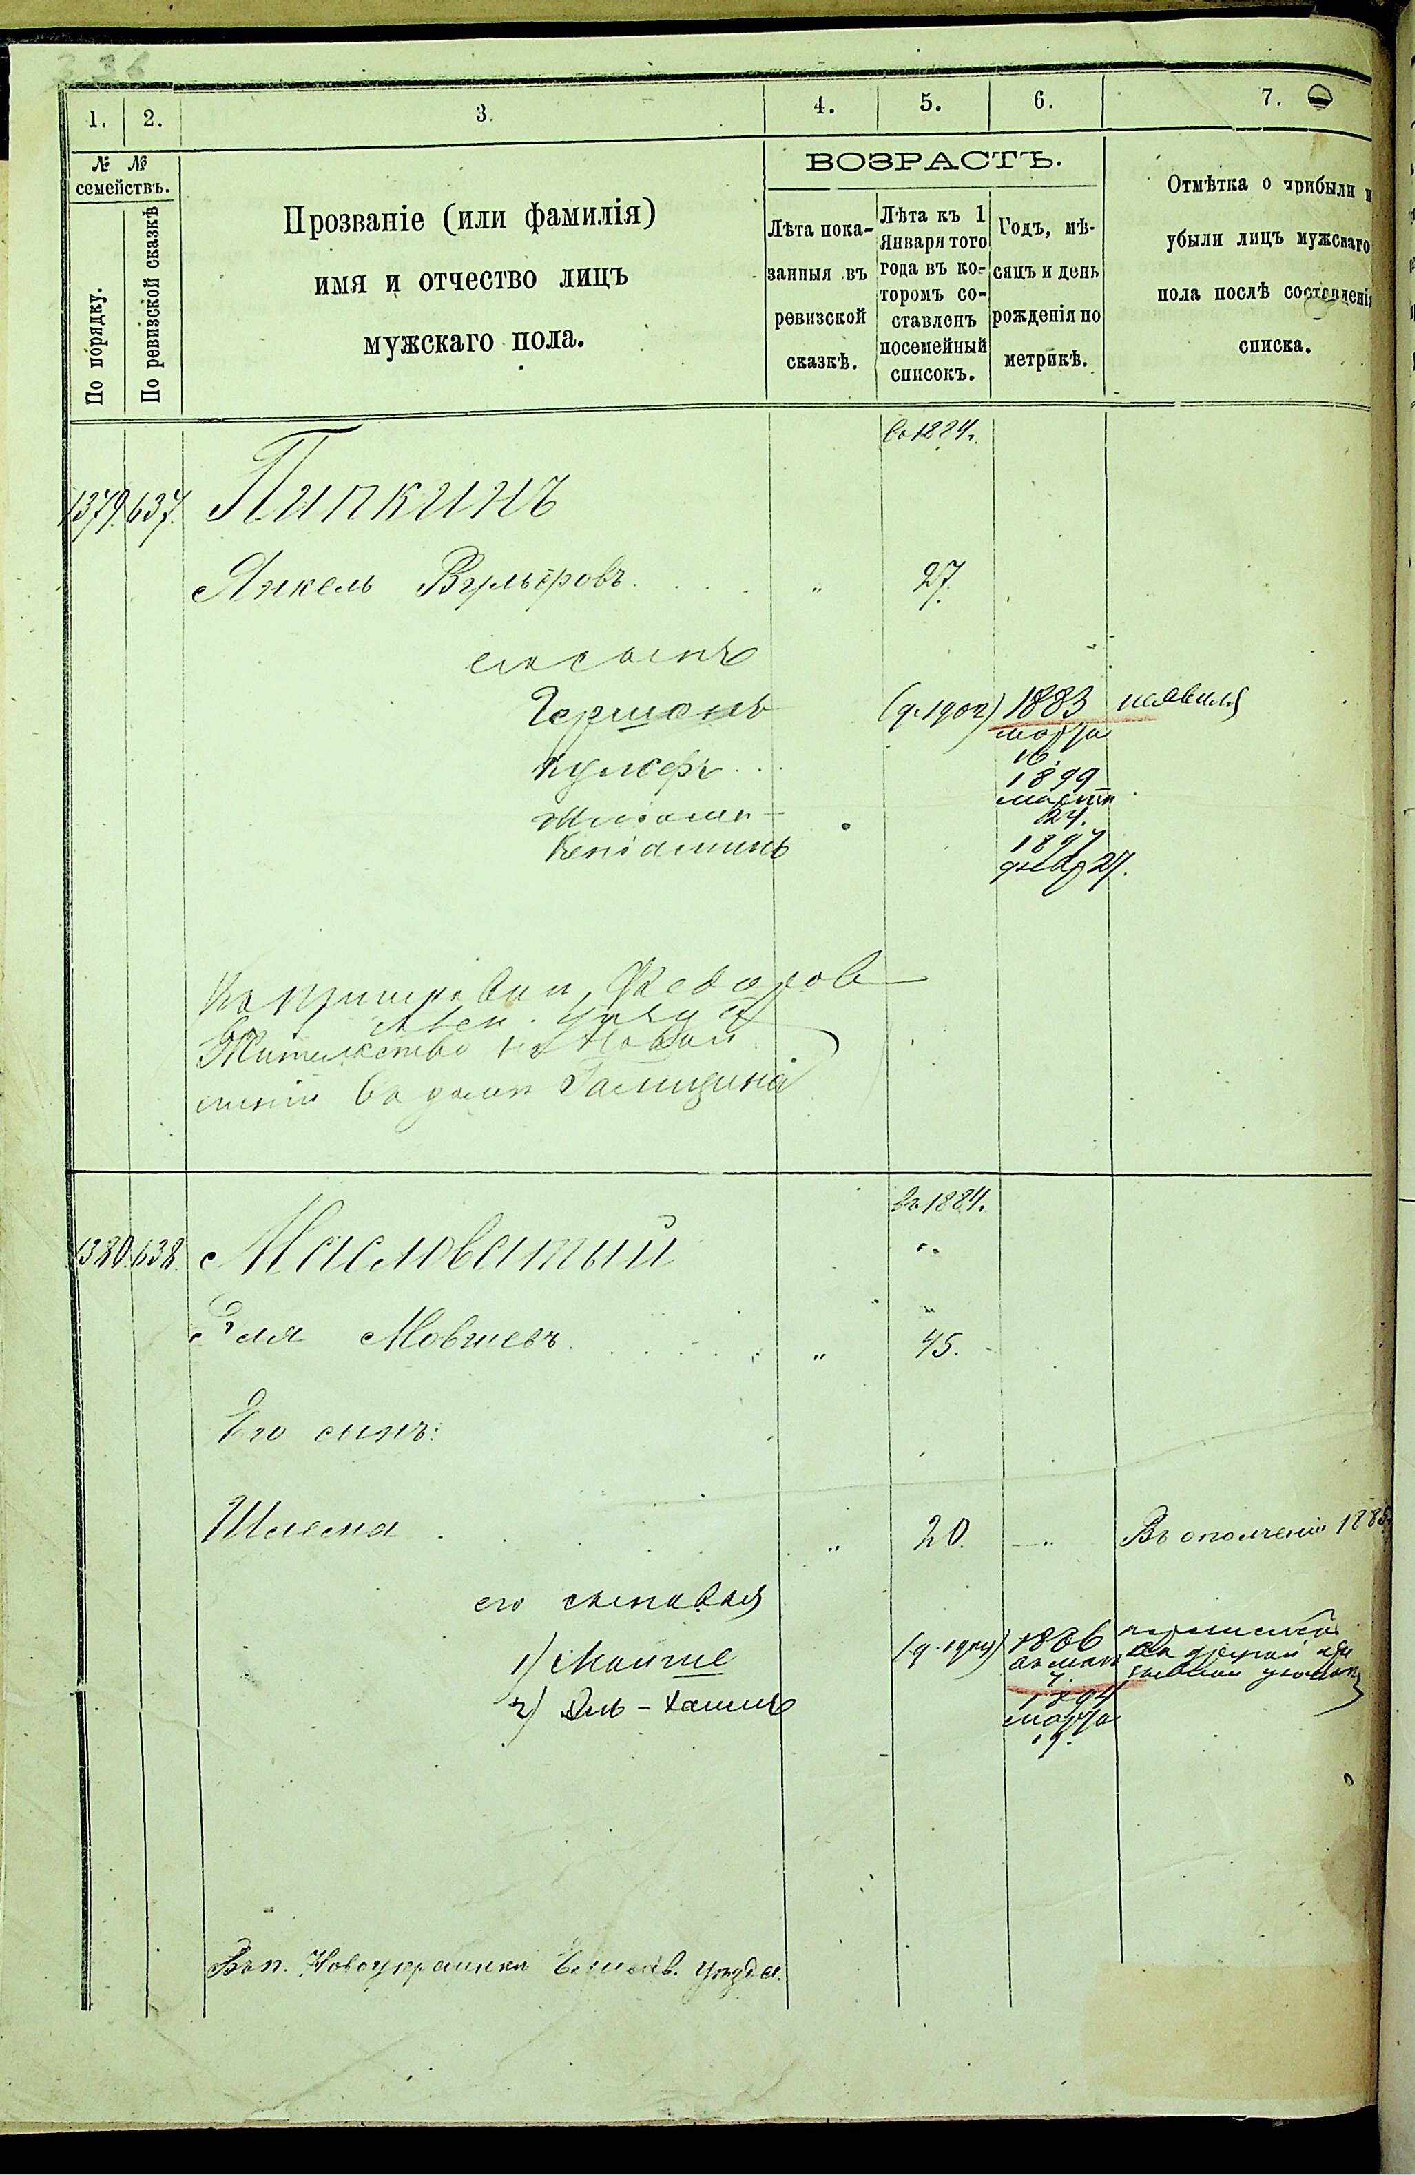 236
1. 2. 3. 4. 5. 6. 7.
№ №
семействъ.
По порядку.
По ревизской сказкѣ
Прозваніе (или фамилія)
имя и отчество лицъ
мужскаго пола.
ВОЗРАСТЪ.
Лѣта пока-
занныя въ
ревизской
сказкѣ.
Лѣта къ 1
Января того
года въ ко-
торомъ со-
ставленъ
посемейный
списокъ.
Годъ, мѣ-
сяцъ и день
рожденія по
метрикѣ.
Отмѣтка о прибыли и
убыли лицъ мужскаго
пола послѣ составленія
списка.
въ 1884.
1379. 637. Пипкинъ
Янкель Вульфовъ. " 27.
его сынъ
Гершонъ 1883
марта
16.
Вульфъ 1899
24.
Веніаминъ
27.
Жительство
въ домѣ
въ 1884.
1380. 638. Масловатый
Эля Мовшевъ. " 45.
Его сынъ:
Шлема " 20. " Въ ополченіи 1885
его сыновья
1) Мойше 1886
7.
2) Эль-Хаимъ 1894
марта
19.
Въ п. Новоукраинка Елисав. уѣзда.